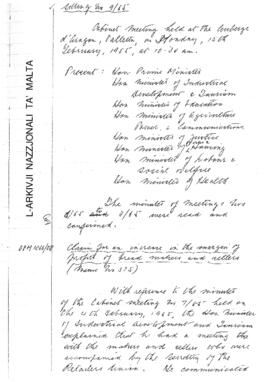 Meeting No 9/65
Cabinet Meeting held at the Auberge
d'Aragon, Valletta, on Monday, 15th
February, 1965, at 10.30 am.
Present: Hon Prime Minister
Hon Minister of Industrial
Development & Tourism
Hon Minister of Education
Hon Minister of Agriculture
Power, & Communications
Hon Minister of Justice
Hon Minister of Housing
Hon Minister of Labour &
Social Welfare
Hon Minister of Health
The minutes of Meetings Nos
and 8/65 were read and
confirmed.
Claim for an increase in the margin of
profit of bread makers and sellers
(Memo No 575)
With reference to the minutes
of the Cabinet meeting No 7/65 held on
the February, 1965, the Hon Minister
of Industrial Development and Tourism
explained that he had a meeting
with the makers and sellers who were
accompanied by the Secretary of the
Retailers Union. He communicated
L-ARKIVJI NAZZJONALI TA' MALTA